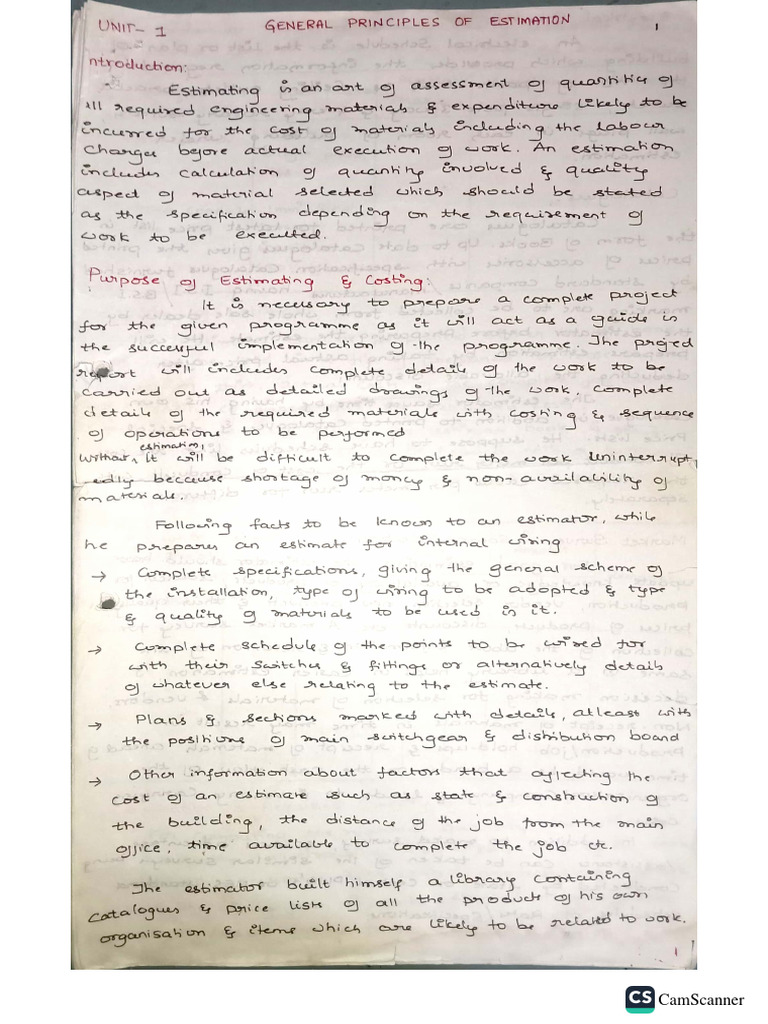 UNIT- 1 GENERAL PRINCIPLES OF ESTIMATION 1
ntroduction:
Estimating is an art of assessment of quantities of
all required engineering materials & expenditure likely to be
incurred for the cost of materials including the labour
charges before actual execution of work. An estimation
includes calculation of quantity involved & quality
aspect of material selected which should be stated
as the specification depending on the requirement of
work to be executed.
Purpose of Estimating & Costing:
It is necessary to prepare a complete project
for the given programme as it will act as a guide in
the successful implementation of the programme. The project
report will includes complete details of the work to be
carried out as detailed drawings of the work, complete
details of the required materials with costing & sequence
of operations to be performed
estimation,
Without, It will be difficult to complete the work uninterrupt
edly because shortage of money & non-availability of
materials.
Following facts to be known to an estimator, while
he prepares an estimate for internal wiring
→ Complete specifications, giving the general scheme of
the installation, type of wiring to be adopted & type
& quality of materials to be used in it.
→ Complete schedule of the points to be wired for
with their switches & fittings or alternatively details
of whatever else relating to the estimate.
→ Plans & sections marked with details, atleast with
the positions of main switchgear & distribution board
→ Other information about factors that affecting the
cost of an estimate such as state & construction of
the building, the distance of the job from the main
office, time available to complete the job etc.
The estimator built himself a library containing
catalogues & price lists of all the products of his own
organisation & items which are likely to be related to work.
1
CS CamScanner